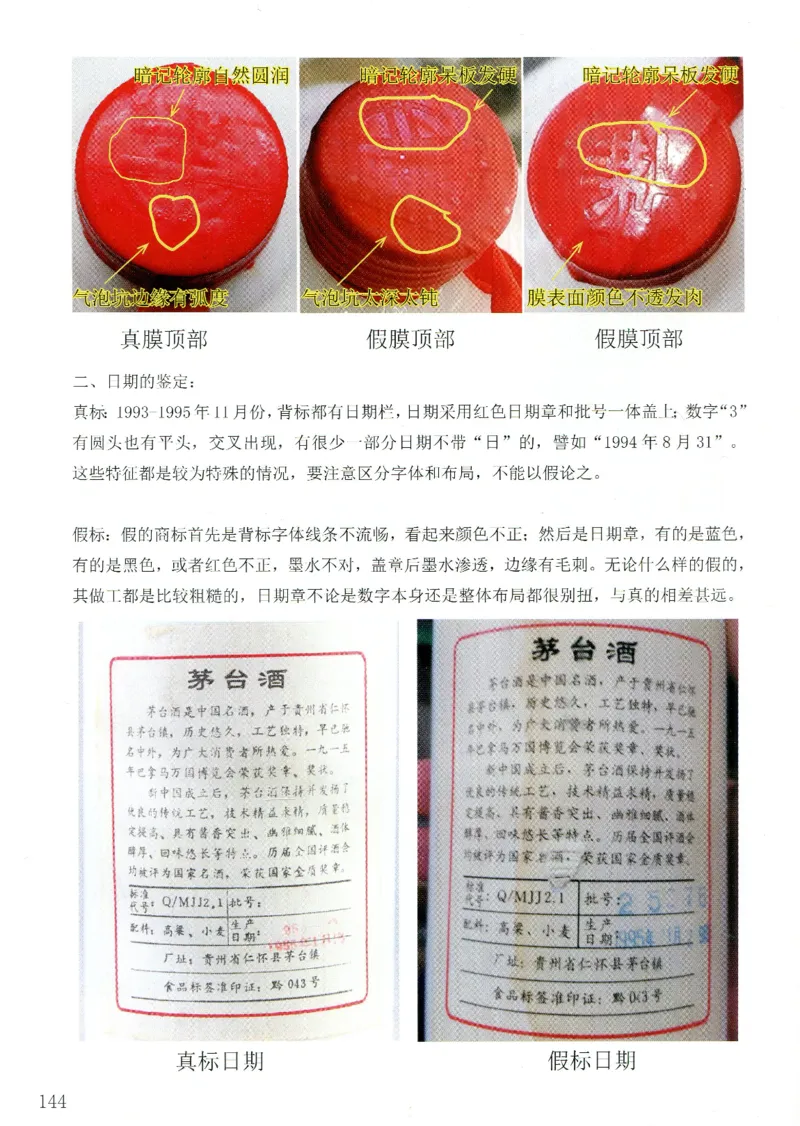 暗记轮廓自然圆润
暗记轮廓呆板发硬
暗记轮廓呆板发硬
气泡坑边缘有弧度
气泡坑太深太钝
膜表面颜色不透发肉
真膜顶部
假膜顶部
假膜顶部
二、日期的鉴定：
真标：1993-1995年11月份，背标都有日期栏，日期采用红色日期章和批号一体盖上；数字“3”
有圆头也有平头，交叉出现，有很少一部分日期不带“日”的，譬如“1994年8月31”。
这些特征都是较为特殊的情况，要注意区分字体和布局，不能以假论之。
假标：假的商标首先是背标字体线条不流畅，看起来颜色不正；然后是日期章，有的是蓝色，
有的是黑色，或者红色不正，墨水不对，盖章后墨水渗透，边缘有毛刺。无论什么样的假的，
其做工都是比较粗糙的，日期章不论是数字本身还是整体布局都很别扭，与真的相差甚远。
茅台酒
茅台酒是中国名酒，产于贵州省仁怀
县茅台镇，历史悠久，工艺独特，早已驰
名中外，为广大消费者所热爱。一九一五
年巴拿马万国博览会荣获奖章、奖状。
新中国成立后，茅台酒保持并发扬了
优良的传统工艺，技术精益求精，质量稳
定提高、具有酱香突出、幽雅细腻、酒体
醇厚、回味悠长等特点。历届全国评酒会
均被评为国家名酒，荣获国家金质奖章。
标准代号：Q/MJJ2.1 批号：
配料：高粱、小麦 生产日期：
厂址：贵州省仁怀县茅台镇
食品标签准印证：黔043号
茅台酒
茅台酒是中国名酒，产于贵州省仁怀
县茅台镇，历史悠久，工艺独特，早已驰
名中外，为广大消费者所热爱。一九一五
年巴拿马万国博览会荣获奖章、奖状。
新中国成立后，茅台酒保持并发扬了
优良的传统工艺，技术精益求精，质量稳
定提高、具有酱香突出、幽雅细腻、酒体
醇厚、回味悠长等特点。历届全国评酒会
均被评为国家名酒，荣获国家金质奖章。
标准代号：Q/MJJ2.1 批号：
配料：高粱、小麦 生产日期：
厂址：贵州省仁怀县茅台镇
食品标签准印证：黔043号
真标日期
假标日期
144